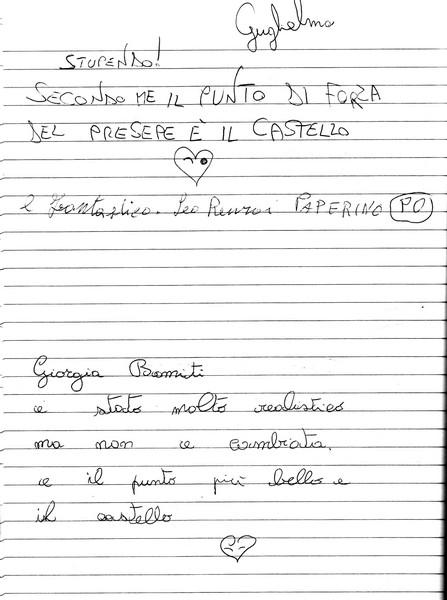 Guglielmo
STUPENDO!
SECONDO ME IL PUNTO DI FORZA
DEL PRESEPE È IL CASTELLO
È Fantastico. Leo Renzoi PAPERINO PO
Giorgia Bomiti
è stato molto realistico
ma non è cambiata.
e il punto più bello è
il castello